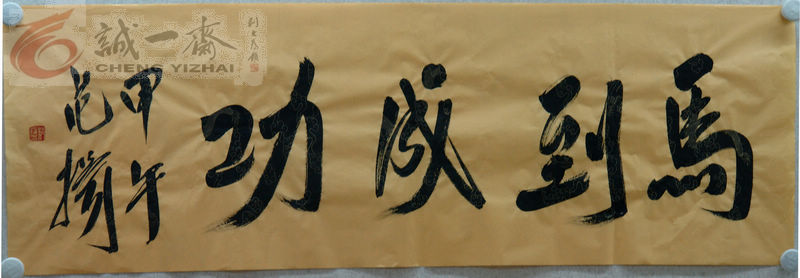 馬到成功
甲午
范揚
誠一齋
CHENG YIZHAI